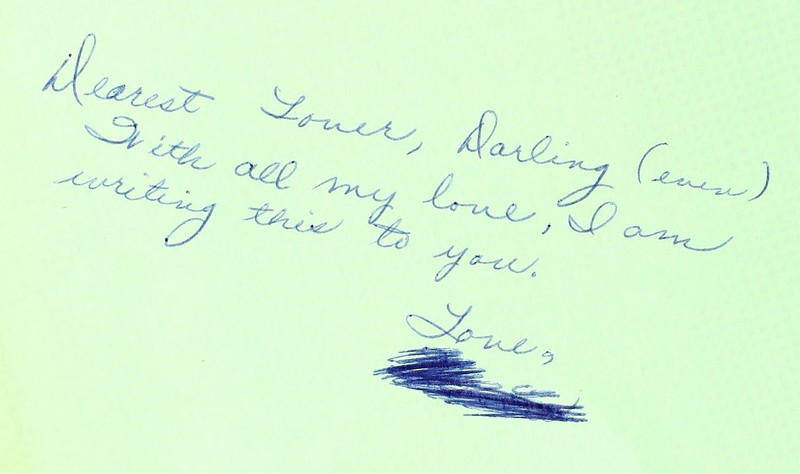 Dearest Lover, Darling (even)
With all my love, I am
writing this to you.
Love,